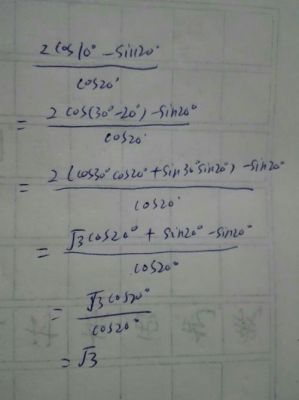 2cos10° - sin20°
cos20°
= 2cos(30°-20°) - sin20°
cos20°
= 2(cos30°cos20° + sin30°sin20°) - sin20°
cos20°
= √3cos20° + sin20° - sin20°
cos20°
= √3cos20°
cos20°
= √3